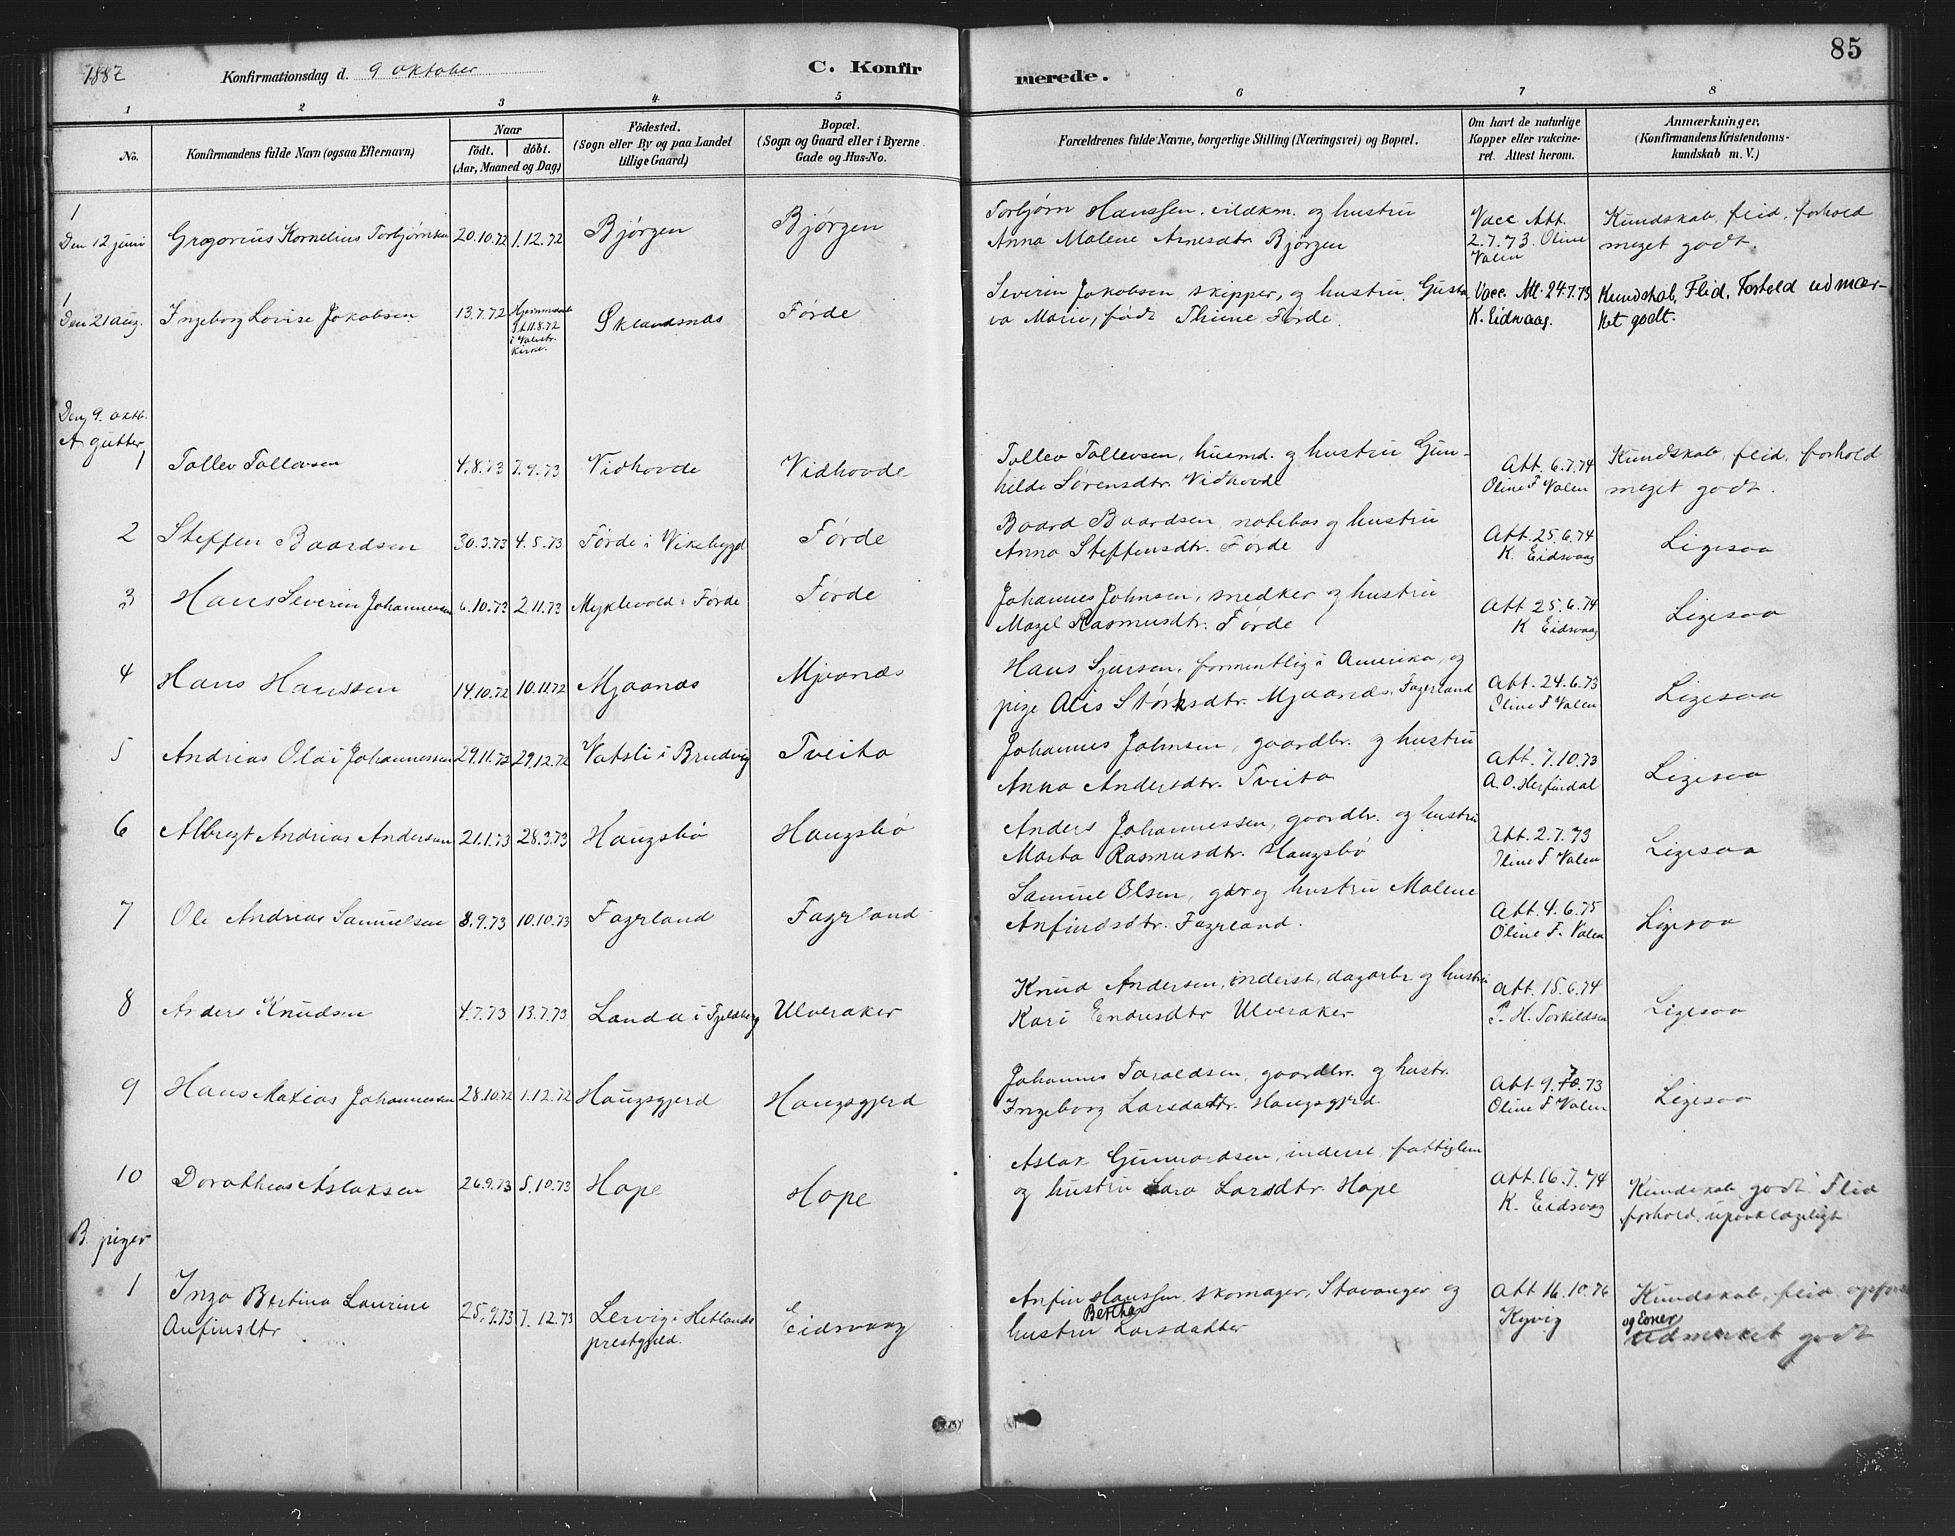 1887 Konfirmationsdag d. 9 oktober C. Konfirmerede. 85
1 2 3 4 5 6 7 8
No. Konfirmandens fulde Navn (ogsaa Efternavn) Naar født. døbt. (Aar, Maaned og Dag) Födested. (Sogn eller By og paa Landet tillige Gaard) Bopæl. (Sogn og Gaard eller i Byerne Gade og Hus-No. Forældrenes fulde Navne, borgerlige Stilling (Næringsvei) og Bopæl. Om havt de naturlige Kopper eller vakcineret. Attest herom. Anmærkninger. (Konfirmandens Kristendomskundskab m. V.)
1
Den 12 juni Gregorius Kornelius Torbjørnsen 20.10.72 1.12.72 Bjørgen Bjørgen Torbjørn Hanssen, og hustru Anna Malene Arnesdtr. Bjørgen Vacc. Att. 2.7.73. Oline Valen Kundskab, flid, forhold meget godt.
1
Den 21 aug. Ingeborg Lovise Jakobsen 13.7.72 Hjemmedøbt St. 11.8.72 i Valestr. Kirke. Sklandsnæs Førde Severin Jakobsen skipper, og hustru Gustava Marie, født Thime Førde. Vacc. Att. 24.7.73 K. Eidsvaag. Kundskab, Flid, Forhold udmærket godt.
Den 9. oktb.
A gutter
1 Tollev Tollevsen 4.8.73 7.9.73 Vidhovde Vidhovde Tollev Tollevsen, husmd. og hustru Gunhilde Sørensdtr. Vidhovde Att. 6.7.74 Oline F Valen Kundskab, flid, forhold meget godt.
2 Steffen Baardsen 30.3.73 4.5.73 Førde i Vikebygd Førde Baard Baardsen, notebas og hustru Anna Steffensdtr. Førde Att. 25.6.74 K. Eidsvaag Ligesaa
3 Hans Severin Johannessen 6.10.73 2.11.73 Myklevold i Førde Førde Johannes Johnsen, snedker og hustru Mazel Rasmusdtr. Førde Att 25.6.74 K Eidsvaag Ligesaa
4 Hans Hanssen 14.10.72 10.11.72 Mjaanæs Mjaanæs Hans Sjursen, formentlig i Amerika, og pige Alis Størksdtr. Mjaanæs. Fagerland Att. 24.6.73 Oline F Valen Ligesaa
5 Andrias Olai Johannessen 29.11.72 29.12.72 Vatsli i Brudvig Tveita Johannes Johnsen, gaardbr. og hustru Anna Andersdtr. Tveita Att. 7.10.73 A.O. Herfindal Ligesaa
6 Albregt Andrias Andersen 21.1.73 28.3.73 Haugsbø Haugsbø Anders Johannessen, gaardbr. og hustru Marta Rasmusdtr. Haugsbø Att. 2.7.73 Oline F Valen Ligesaa
7 Ole Andrias Samuelsen 8.9.73 10.10.73 Fagrland Fagrland Samuel Olsen, gbr og hustru Malene Anfindsdtr. Fagrland. Att. 4.6.75 Oline F. Valen Ligesaa
8 Anders Knudsen 4.7.73 13.7.73 Landa i Fjeldberg Ulveraker Knud Andersen, inderst, dagarbr og hustru Kari Endresdtr Ulveraker Att. 15.6.74 P. H. Torkildsen Ligesaa
9 Hans Matias Johannessen 28.10.72 1.12.72 Haugsgjerd Haugsgjerd Johannes Taraldsen, gaardbr. og hustr. Ingeborg Larsdatr. Haugsgjerd Att 9.7.73 Oline F Valen Ligesaa
10 Dorotheas Aslaksen 26.9.73 5.10.73 Hope Hope Aslak Gunnardsen, inderst, fattiglem og hustru Lara Larsdtr. Hope Att. 16.7.74 K. Eidsvaag Kundskab godt Flid forhold upaaklageligt
B. piger
1 Inga Bertina Laurine Anfinsdtr 25.9.73 7.12.73 Lervig i Hetlands prestgjeld. Eidsvaag Anfin Hanssen skomager, Stavanger og hustru Berthe Larsdatter Att 16.10.76 Kyvig Kundskab, flid, opførs og Evner udmerket godt